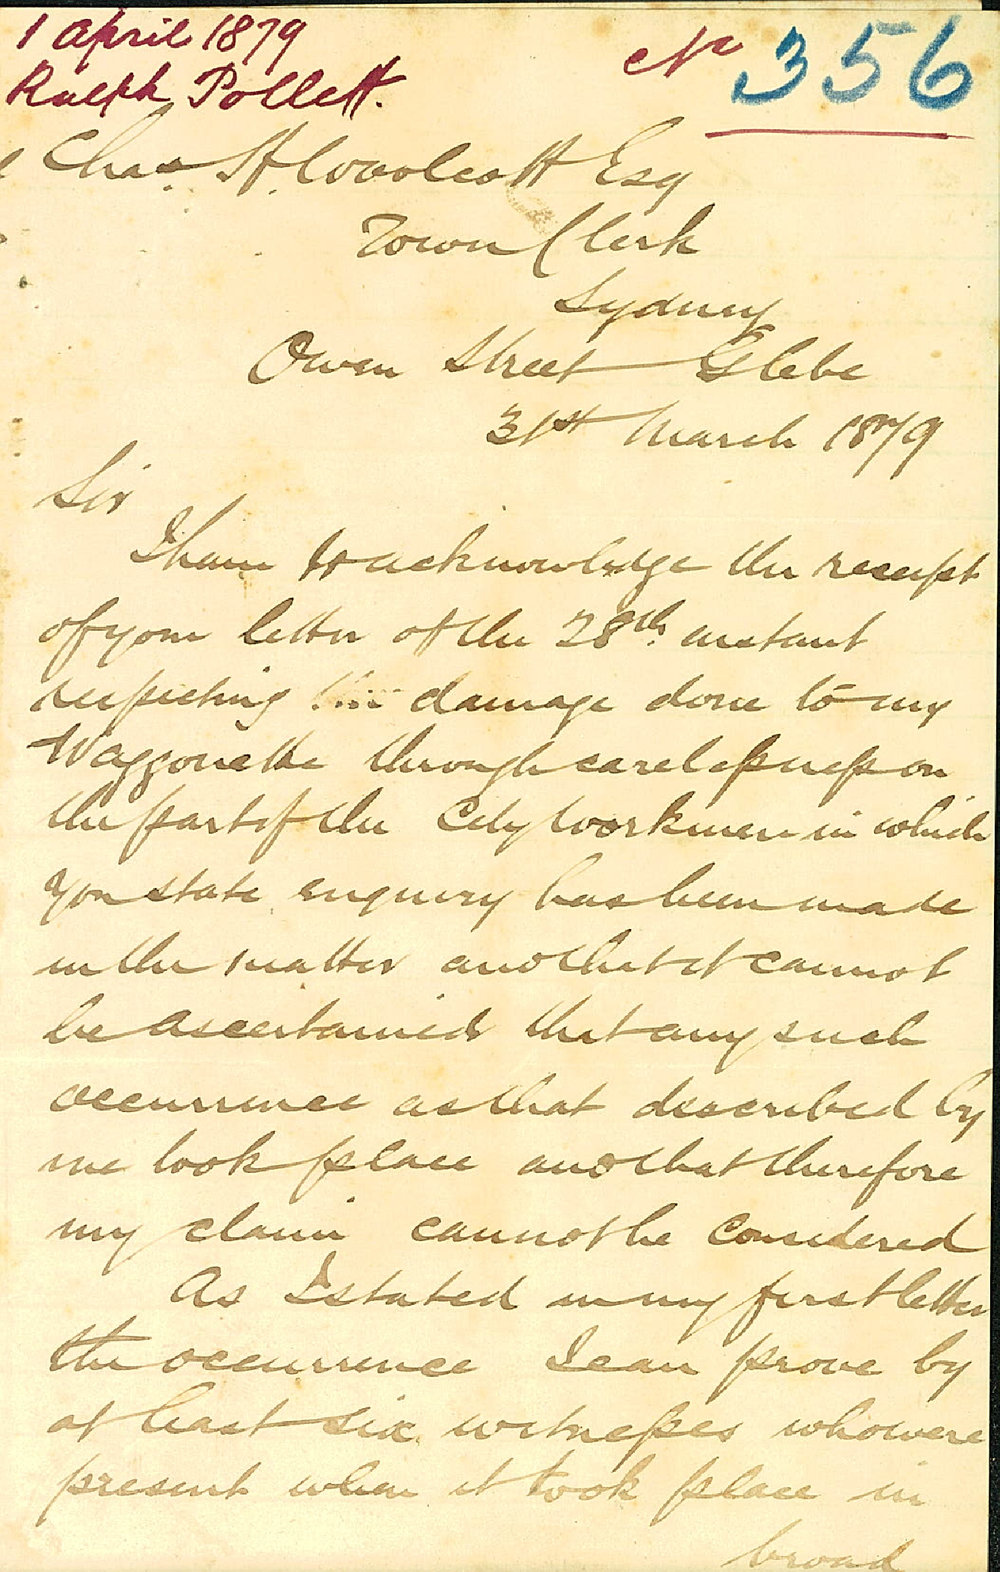 1 April 1879
Ralph Pollett.
No 356
Chas. H. Woolcott Esq
Town Clerk
Sydney
Owen Street Glebe
31st March 1879
Sir
I have to acknowledge the receipt
of your letter of the 28th. instant
respecting the damage done to my
Waggonette through carelessness on
the part of the City Workmen in which
you state enquiry has been made
in the matter and that it cannot
be ascertained that any such
occurrence as that described by
me took place and that therefore
my claim cannot be Considered
As I stated in my first letter
the occurrence I can prove by
at least six witnesses who were
present when it took place in
broad